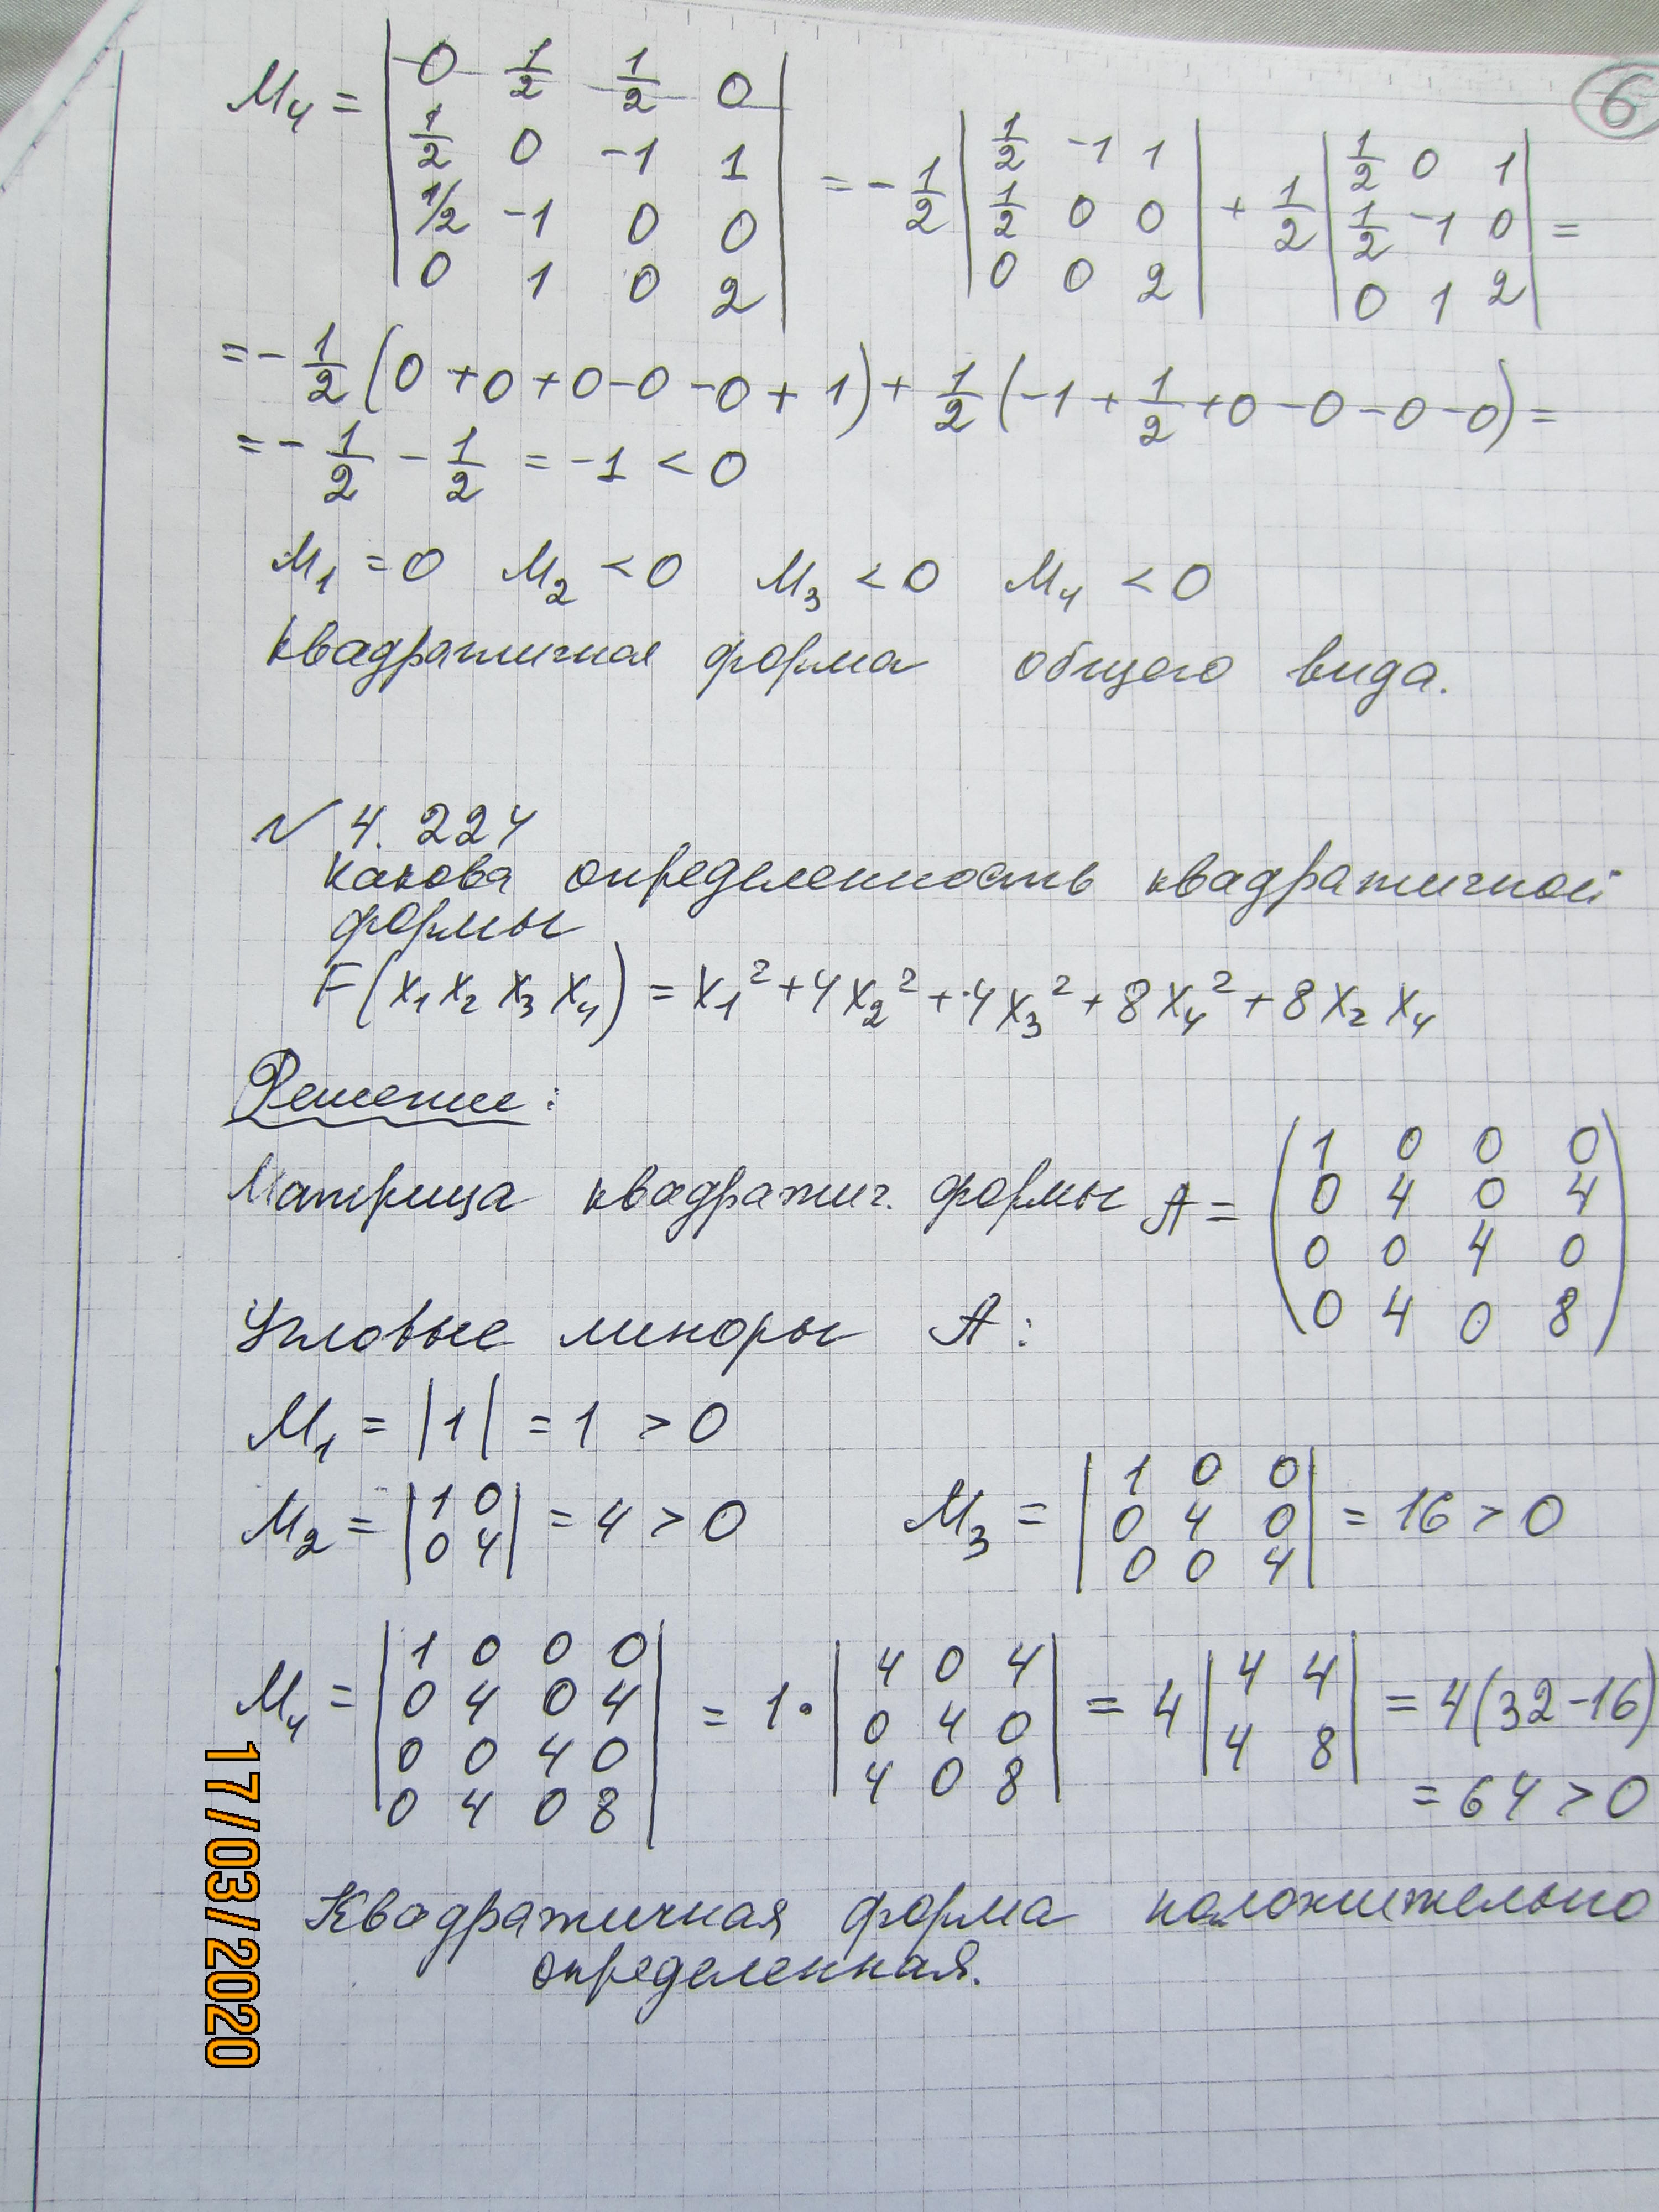 6
M₄ = | 0 1/2 1/2 0 |
| 1/2 0 -1 1 |
| 1/2 -1 0 0 |
| 0 1 0 2 |
= - 1/2 | 1/2 -1 1 | + 1/2 | 1/2 0 1 | =
| 1/2 0 0 | | 1/2 -1 0 |
| 0 0 2 | | 0 1 2 |
= - 1/2 (0 + 0 + 0 - 0 - 0 + 1) + 1/2 (-1 + 1/2 + 0 - 0 - 0 - 0) =
= - 1/2 - 1/2 = -1 < 0
M₁ = 0 M₂ < 0 M₃ < 0 M₄ < 0
Квадратичная форма общего вида.
№ 4.224
Какова определенность квадратичной
формы
F(x₁ x₂ x₃ x₄) = x₁² + 4x₂² + 4x₃² + 8x₄² + 8x₂ x₄
Решение:
Матрица квадратич. формы A = ( 1 0 0 0 )
( 0 4 0 4 )
( 0 0 4 0 )
( 0 4 0 8 )
Угловые миноры A:
M₁ = |1| = 1 > 0
M₂ = | 1 0 | = 4 > 0
| 0 4 |
M₃ = | 1 0 0 | = 16 > 0
| 0 4 0 |
| 0 0 4 |
M₄ = | 1 0 0 0 | = 1 · | 4 0 4 | = 4 | 4 4 | = 4(32-16)
| 0 4 0 4 | | 0 4 0 | | 4 8 |
| 0 0 4 0 | | 4 0 8 |
| 0 4 0 8 |
= 64 > 0
Квадратичная форма положительно
определенная.
17/03/2020